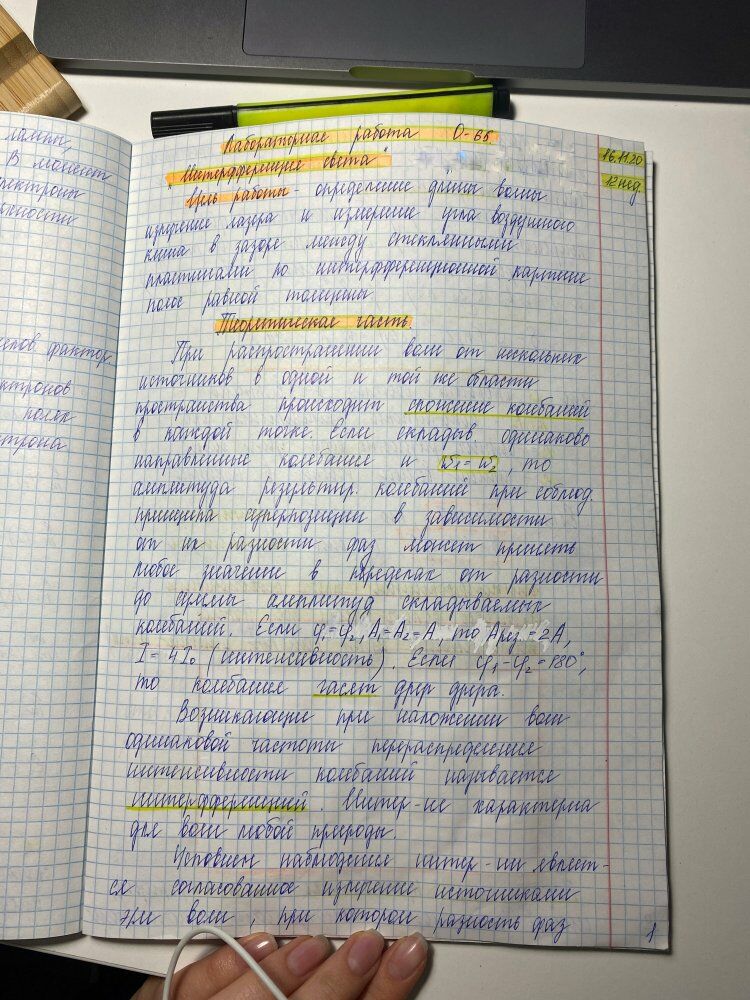 лампы,
В момент
электроны
Лабораторная работа О-65
16.11.20
"Интерференция света"
12 нед.
Цель работы - определение длины волны
излучение лазера и измерение угла воздушного
клина в зазоре между стеклянными
пластинами по интерференционной картине
полос равной толщины
Теоретическая часть.
При распространении волн от нескольких
источников в одной и той же области
пространства происходит сложение колебаний
в каждой точке. Если складыв. одинаково
направленные колебание и ω₁ = ω₂, то
амплитуда результир. колебаний при соблюд.
принципа суперпозиции в зависимости
от их разности фаз может принять
любое значение в пределах от разности
до суммы амплитуд складываемых
колебаний. Если φ₁=φ₂, A₁=A₂=A, то Aрез.=2A,
I = 4I₀ (интенсивность). Если φ₁-φ₂=180°,
то колебание гасят друг друга.
Возникающие при наложении волн
одинаковой частоты перераспределение
интенсивности колебаний называется
интерференцией. Интер-ие характерна
для волн любой природы.
Условием наблюдение интер-ии являет-
ся согласованное излучение источниками
э/м волн, при котором разность фаз
1
фактор.
электронов
полях